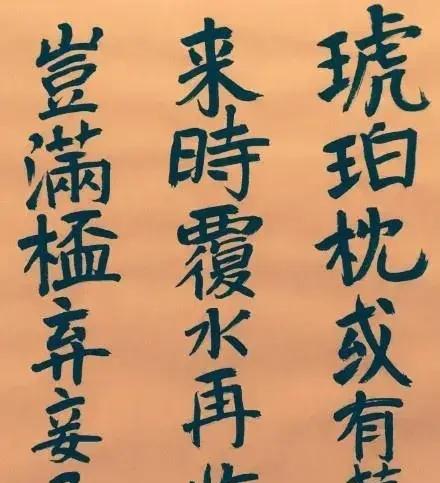 琥珀枕或有
来時覆水再
豈滿榼弃妾